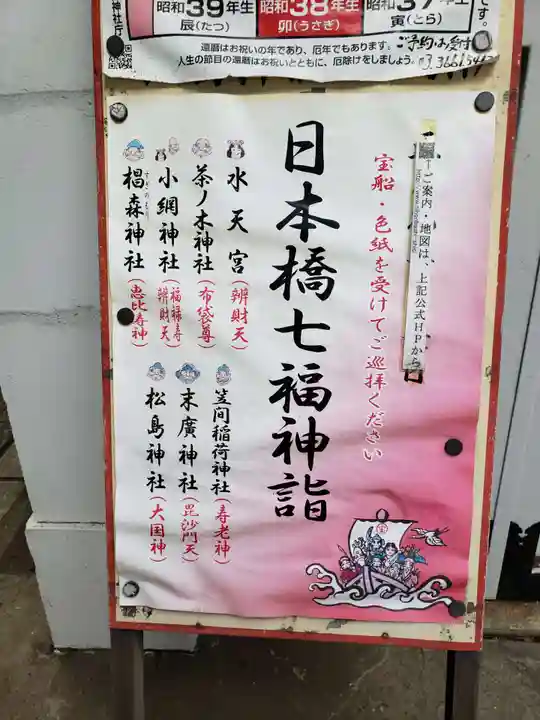 昭和39年生
辰(たつ)
昭和38年生
卯(うさぎ)
昭和37年生
寅(とら)
です。
神社庁
還暦はお祝いの年であり、厄年でもあります。
人生の節目の還暦はお祝いとともに、厄除けをしましょう。
ご予約は受付
宝船・色紙を受けてご巡拝ください
↑ご案内・地図は、上記公式HPから
日本橋七福神詣
水天宮(辨財天)
茶ノ木神社(布袋尊)
小網神社(福禄寿 辨財天)
すぎのもり
椙森神社(恵比寿神)
笠間稲荷神社(寿老神)
末廣神社(毘沙門天)
松島神社(大国神)
宝